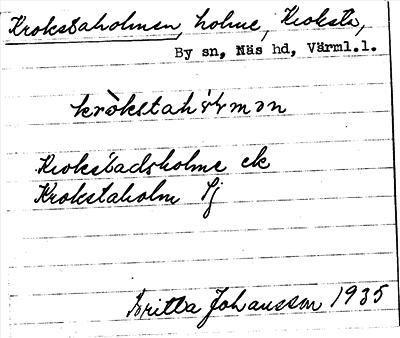 Krokstaholmen, holme, Kroksta,
By sn, Näs hd, Värml.l.
Krokstadsholme ek
Krokstaholm
Britta Johansson 1935